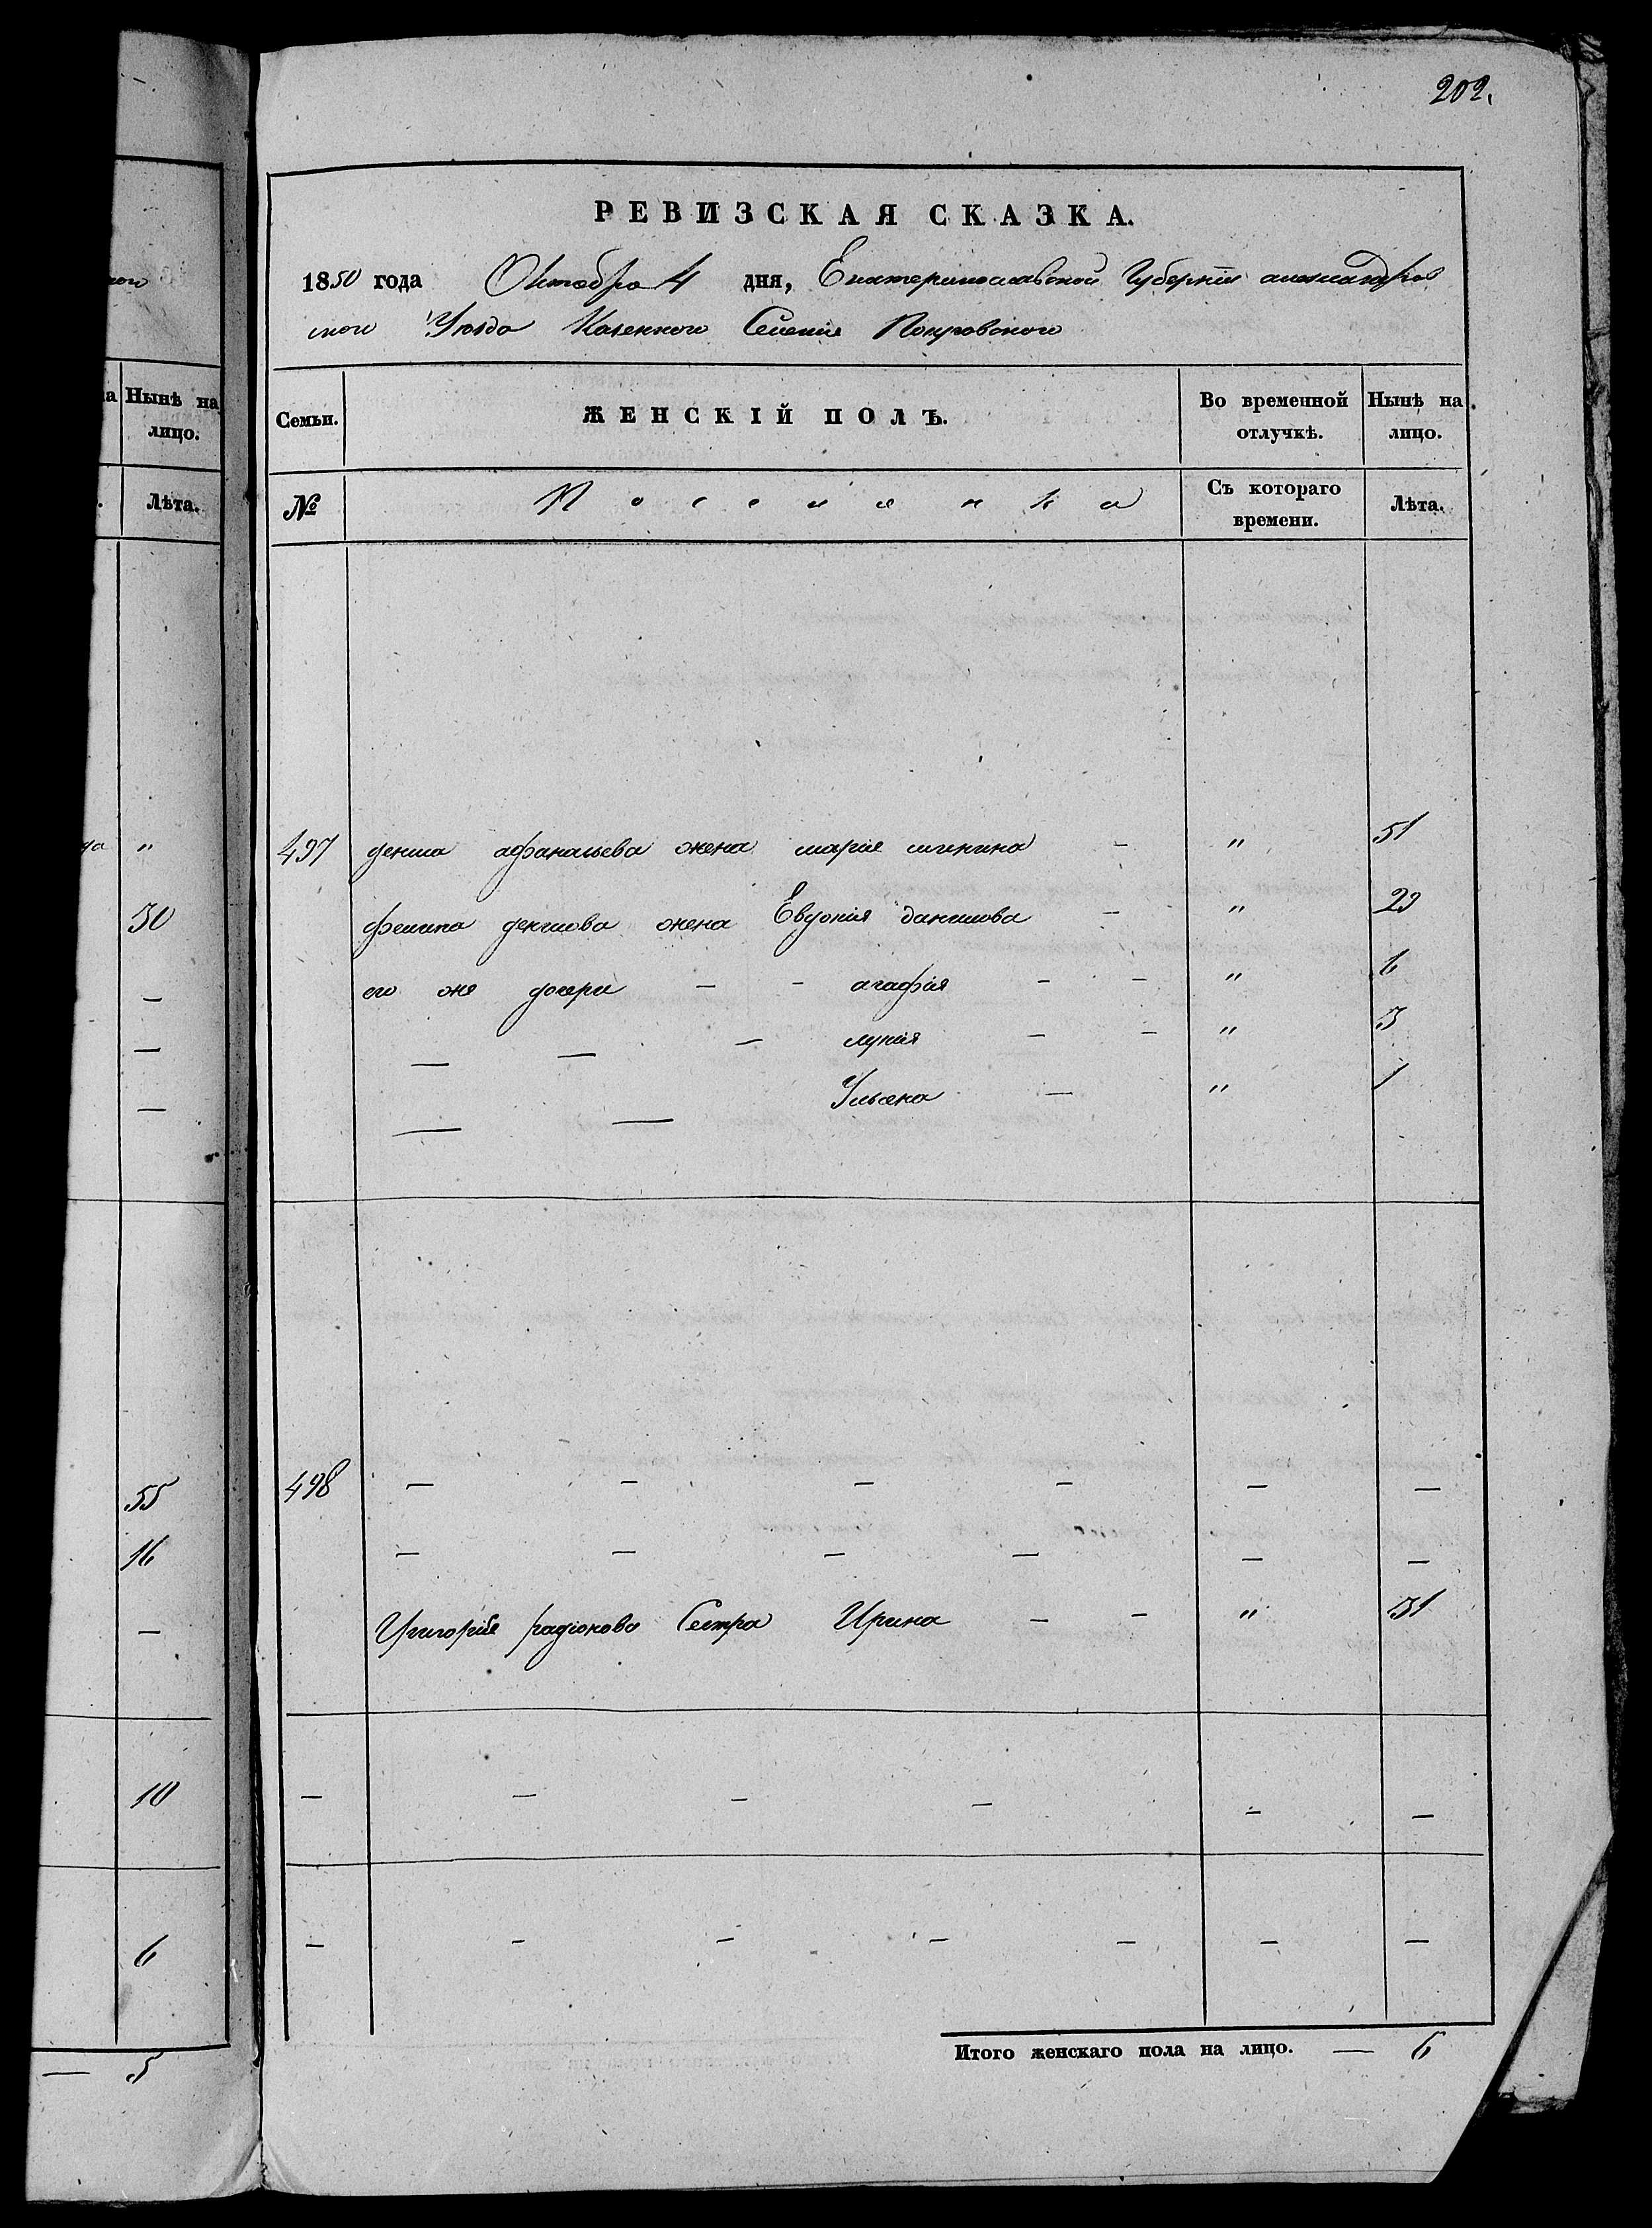 202.
РЕВИЗСКАЯ СКАЗКА.
1850 года Октября 4 дня, Екатеринославской Губернии александров
ского Уезда Казенного Селения Покровского
Нынѣ на
лицо.
Лѣта.
Семьи.
ЖЕНСКІЙ ПОЛЪ.
Во временной
отлучкѣ.
Нынѣ на
лицо.
№
Поселянка
Съ котораго
времени.
Лѣта.
497 дениса афанасьева жена марія " 51
30
филипа денисова жена Евдокия данилова — " 29
его же дочери — — агафія — — " 6
— — — лукия — — " 3
— — Ульяна — " 1
55
498 — — — — — —
16
— — — — — —
Григория радионова Сестра Ирина — — " 31
10
— — — — — —
6
— — — — — — —
Итого женскаго пола на лицо. — 6
— 5